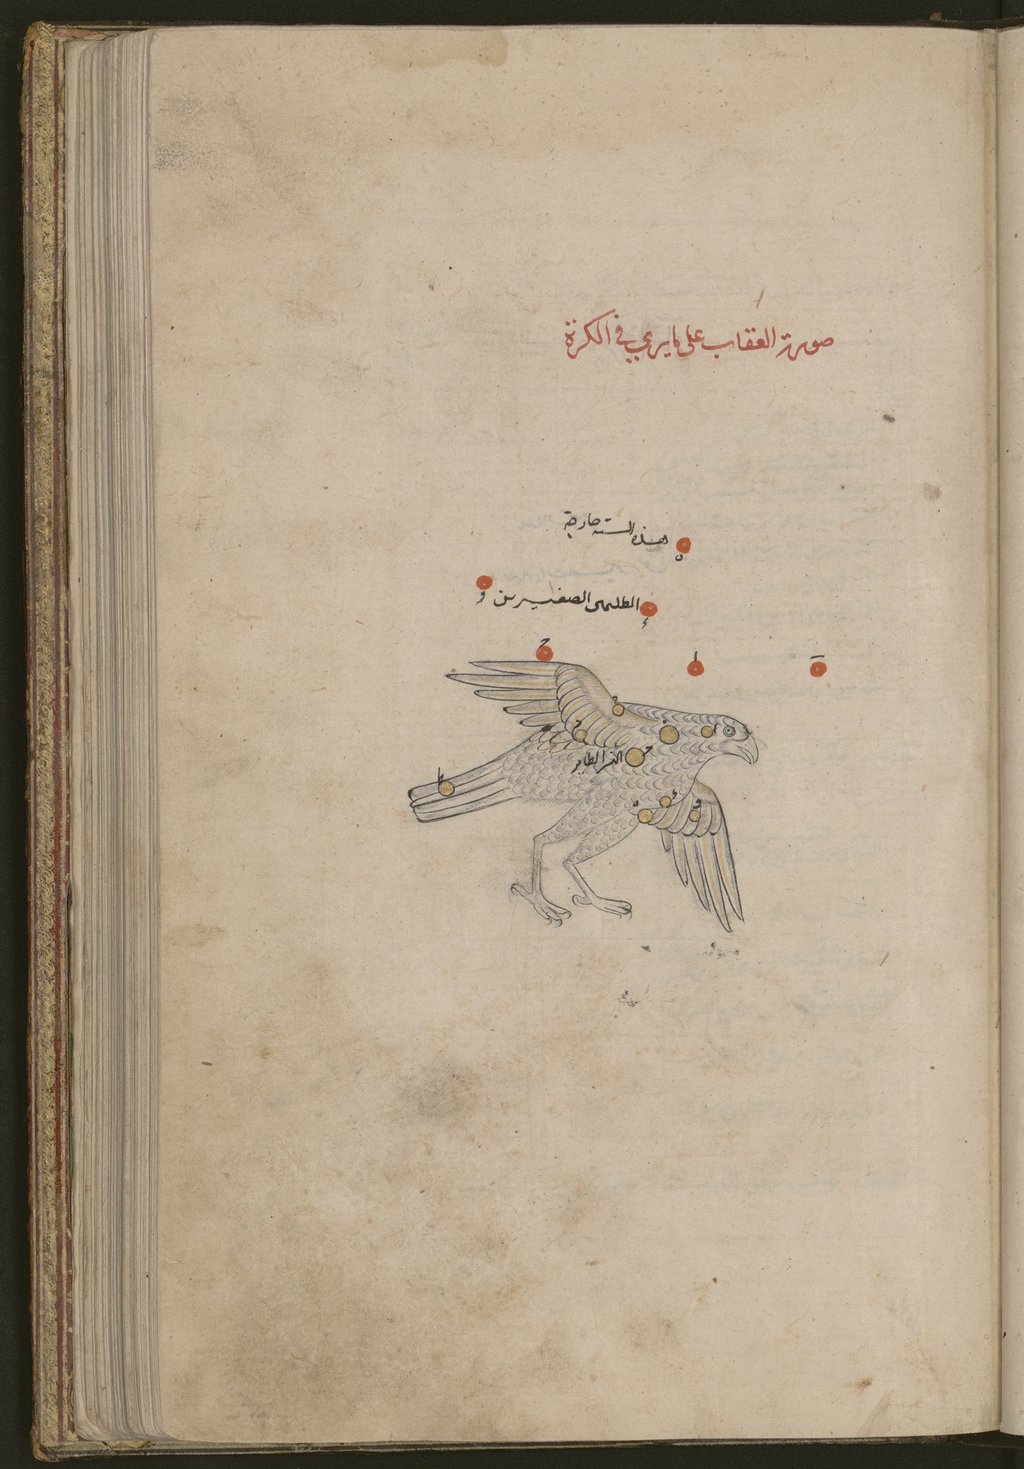 صورة العقاب على ما يرى في الكرة
هذه الستة خارجة
ه
و
الظليمين الصغيرين
ء
ح
ا
النسر الطاير
ط
و
ه